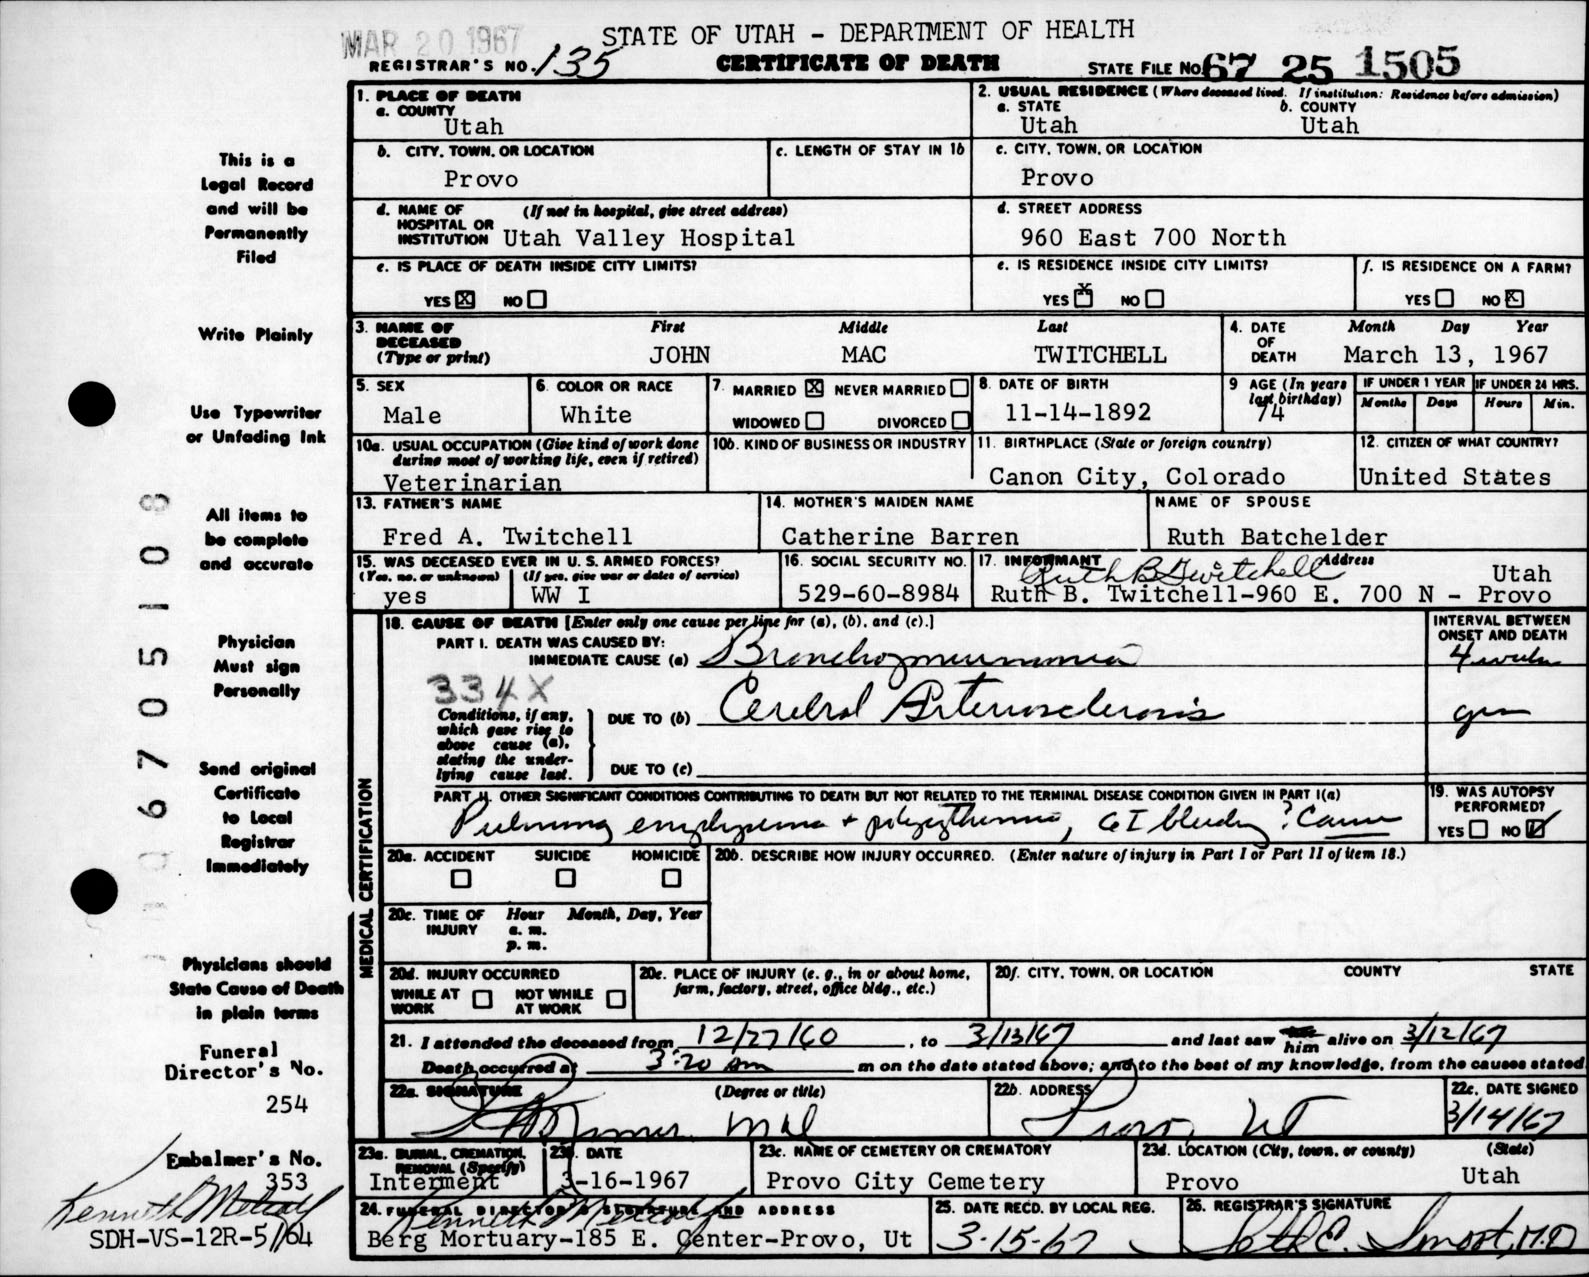 MAR 20 1967
STATE OF UTAH - DEPARTMENT OF HEALTH
REGISTRAR'S NO. 135
CERTIFICATE OF DEATH
STATE FILE NO. 67 25 1505
This is a
Legal Record
and will be
Permanently
Filed
Write Plainly
Use Typewriter
or Unfading Ink
All items to
be complete
and accurate
Physician
Must sign
Personally
Send original
Certificate
to Local
Registrar
Immediately
Physicians should
State Cause of Death
in plain terms
Funeral
Director's No.
254
Embalmer's No.
353
Kenneth Metcalf
SDH-VS-12R-5/64
1. PLACE OF DEATH
a. COUNTY
Utah
2. USUAL RESIDENCE (Where deceased lived. If institution: Residence before admission)
a. STATE b. COUNTY
Utah Utah
b. CITY, TOWN, OR LOCATION
Provo
c. LENGTH OF STAY IN 1b
c. CITY, TOWN, OR LOCATION
Provo
d. NAME OF (If not in hospital, give street address)
HOSPITAL OR
INSTITUTION Utah Valley Hospital
d. STREET ADDRESS
960 East 700 North
e. IS PLACE OF DEATH INSIDE CITY LIMITS?
YES X NO
e. IS RESIDENCE INSIDE CITY LIMITS?
YES X NO
f. IS RESIDENCE ON A FARM?
YES NO X
3. NAME OF First Middle Last
DECEASED
(Type or print) JOHN MAC TWITCHELL
4. DATE Month Day Year
OF
DEATH March 13, 1967
5. SEX
Male
6. COLOR OR RACE
White
7. MARRIED X NEVER MARRIED
WIDOWED DIVORCED
8. DATE OF BIRTH
11-14-1892
9 AGE (In years
last birthday)
74
IF UNDER 1 YEAR IF UNDER 24 HRS.
Months Days Hours Min.
10a. USUAL OCCUPATION (Give kind of work done
during most of working life, even if retired)
Veterinarian
10b. KIND OF BUSINESS OR INDUSTRY
11. BIRTHPLACE (State or foreign country)
Canon City, Colorado
12. CITIZEN OF WHAT COUNTRY?
United States
13. FATHER'S NAME
Fred A. Twitchell
14. MOTHER'S MAIDEN NAME
Catherine Barren
NAME OF SPOUSE
Ruth Batchelder
15. WAS DECEASED EVER IN U. S. ARMED FORCES?
(Yes, no, or unknown) (If yes, give war or dates of service)
yes WW I
16. SOCIAL SECURITY NO.
529-60-8984
17. INFORMANT Address
Ruth B Twitchell
Utah
Ruth B. Twitchell-960 E. 700 N - Provo
MEDICAL CERTIFICATION
18. CAUSE OF DEATH [Enter only one cause per line for (a), (b), and (c).]
PART I. DEATH WAS CAUSED BY:
IMMEDIATE CAUSE (a) Bronchopneumonia
INTERVAL BETWEEN
ONSET AND DEATH
4 weeks
334X
Conditions, if any,
which gave rise to
above cause (a),
stating the under-
lying cause last.
DUE TO (b) Cerebral Arteriosclerosis
yrs
DUE TO (c)
PART II. OTHER SIGNIFICANT CONDITIONS CONTRIBUTING TO DEATH BUT NOT RELATED TO THE TERMINAL DISEASE CONDITION GIVEN IN PART I(a)
Pulmonary emphysema + polycythemia, GI bleeding ? Cause
19. WAS AUTOPSY
PERFORMED?
YES NO
20a. ACCIDENT SUICIDE HOMICIDE
20b. DESCRIBE HOW INJURY OCCURRED. (Enter nature of injury in Part I or Part II of item 18.)
20c. TIME OF Hour Month, Day, Year
INJURY a. m.
p. m.
20d. INJURY OCCURRED
WHILE AT NOT WHILE
WORK AT WORK
20e. PLACE OF INJURY (e. g., in or about home,
farm, factory, street, office bldg., etc.)
20f. CITY, TOWN, OR LOCATION COUNTY STATE
21. I attended the deceased from 12/27/60, to 3/13/67 and last saw him alive on 3/12/67
Death occurred at 3:20 am m on the date stated above; and to the best of my knowledge, from the causes stated.
22a. SIGNATURE (Degree or title)
MD
22b. ADDRESS
Provo, Ut
22c. DATE SIGNED
3/14/67
23a. BURIAL, CREMATION,
REMOVAL (Specify)
Interment
23b. DATE
3-16-1967
23c. NAME OF CEMETERY OR CREMATORY
Provo City Cemetery
23d. LOCATION (City, town, or county) (State)
Provo Utah
24. FUNERAL DIRECTOR'S SIGNATURE AND ADDRESS
Kenneth Metcalf
Berg Mortuary-185 E. Center-Provo, Ut
25. DATE RECD. BY LOCAL REG.
3-15-67
26. REGISTRAR'S SIGNATURE
Seth E. Smoot, M.D
096705108